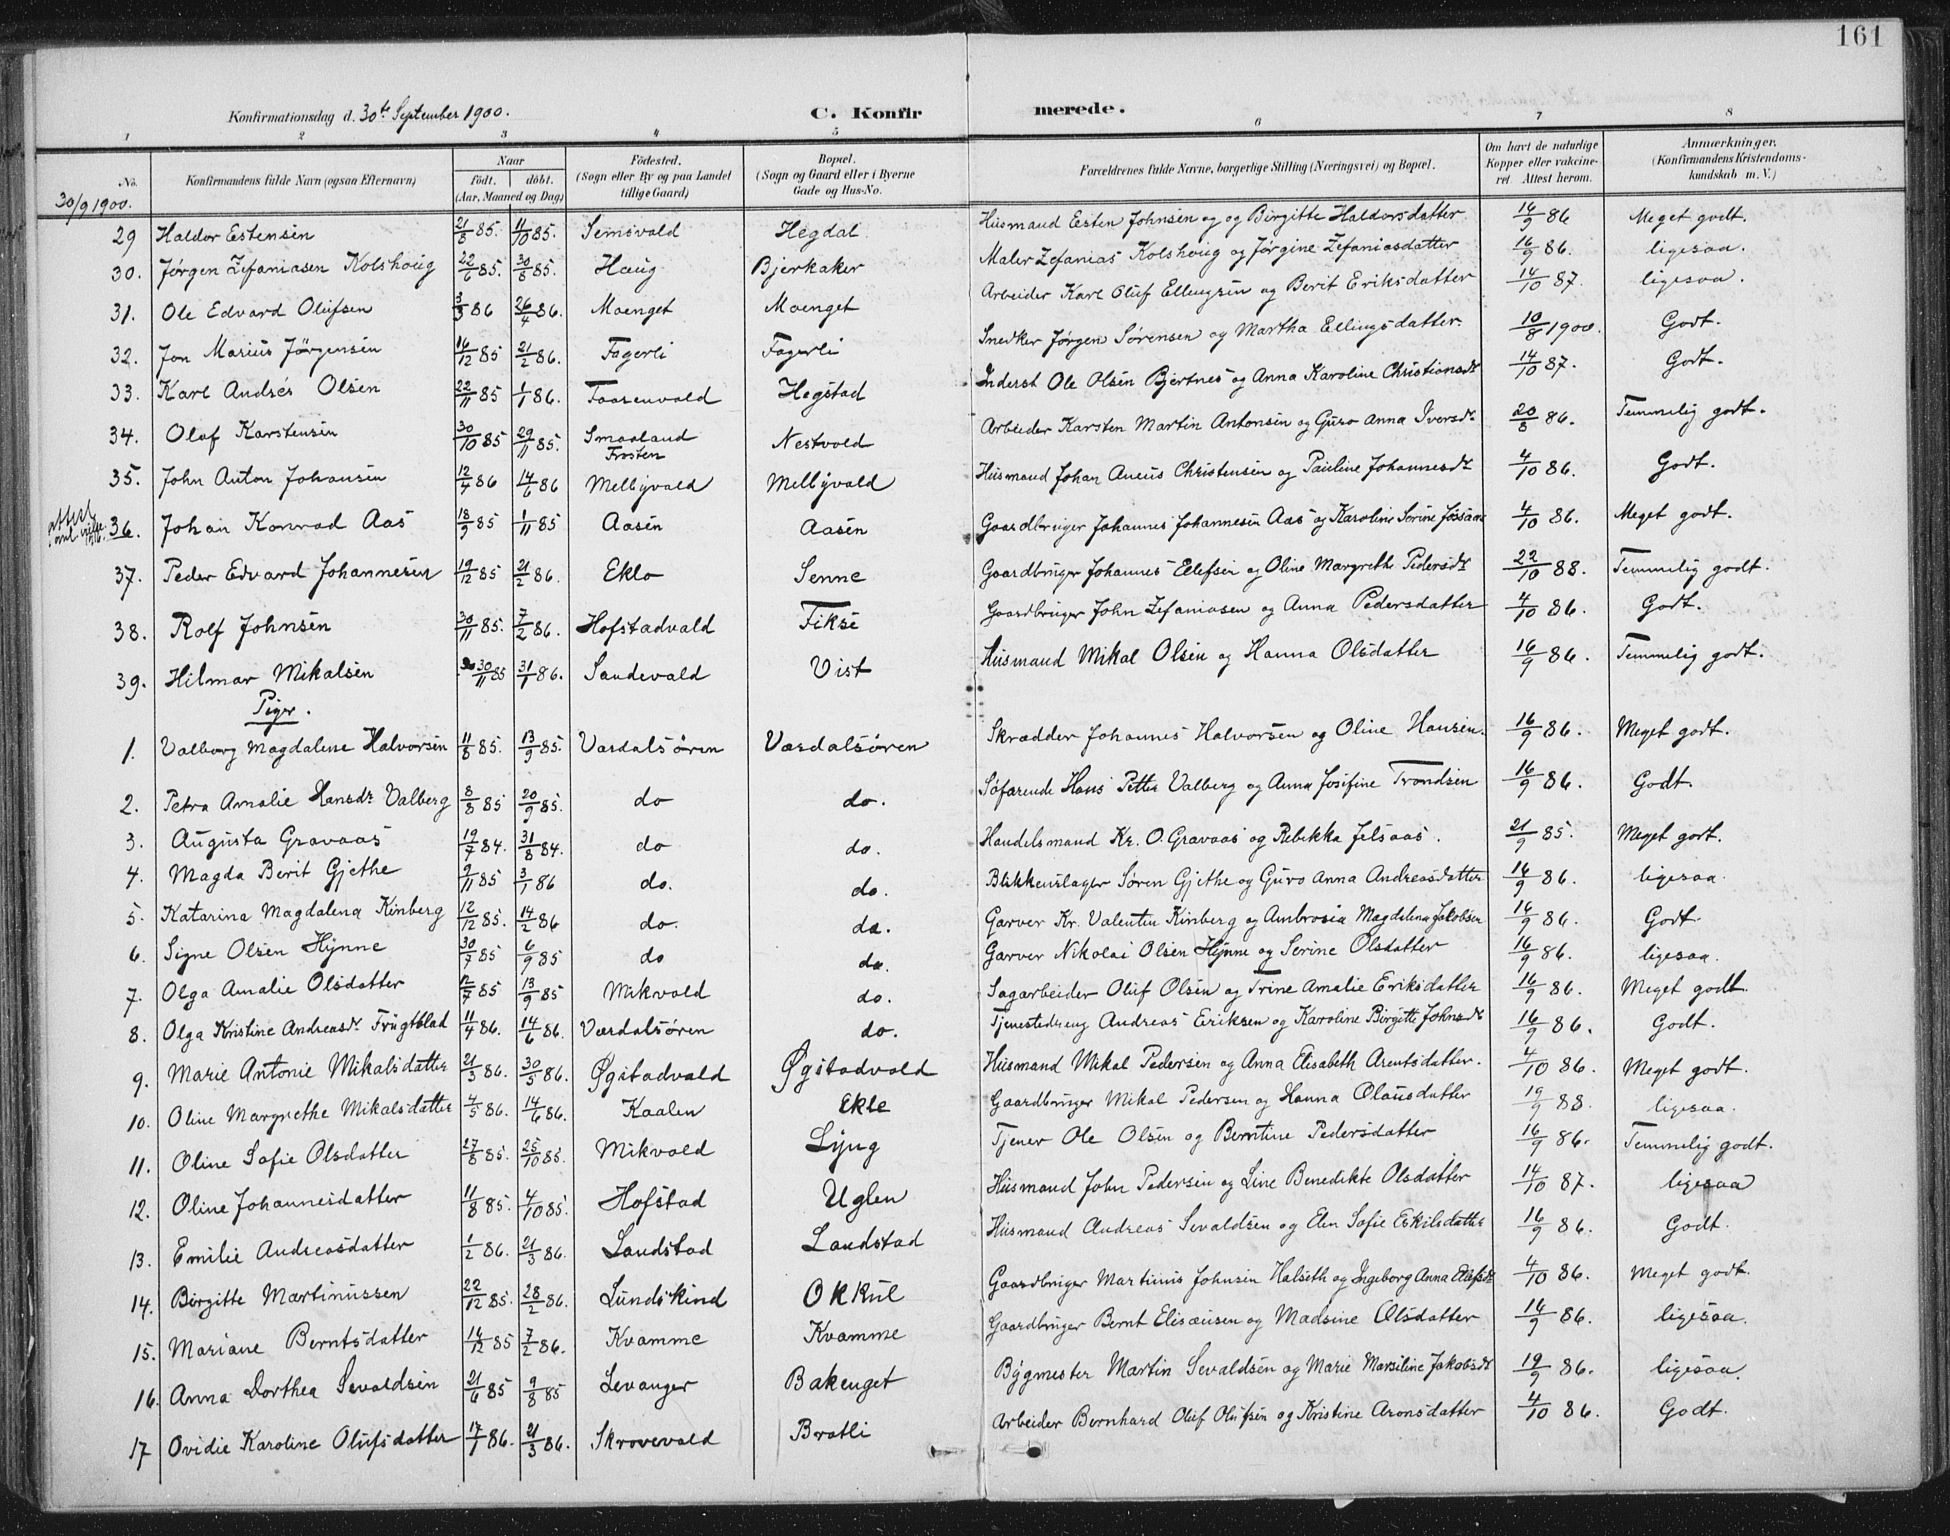 161
Konfirmationsdag d. 30te September 1900.
C. Konfirmerede.
1 2 3 4 5 6 7 8
No.
Konfirmandens fulde Navn (ogsaa Efternavn)
Naar
født. døbt.
(Aar, Maaned og Dag)
Fødested.
(Sogn eller By og paa Landet
tillige Gaard)
Bopæl.
(Sogn og Gaard eller i Byerne
Gade og Hus-No.
Forældrenes fulde Navne, borgerlige Stilling (Næringsvei) og Bopæl.
Om havt de naturlige
Kopper eller vakcine-
ret. Attest herom.
Anmærkninger.
(Konfirmandens Kristendoms-
kundskab m. V.)
30/9 1900.
29 Haldor Estensen 21/8 85. 4/10 85. Semsvald Hegdal Husmand Esten Johnsen og og Birgitte Haldorsdatter 16/9 86 Meget godt.
30. Jørgen Zefaniasen Kolshoug 22/6 85. 30/8 85. Haug Bjerkaker Maler Zefanias Kolshoug og Jørgine Zefaniasdatter 16/9 86. ligesaa.
31. Ole Edvard Olufsen 3/3 86 26/4 86. Moenget Moenget Arbeider Karl Oluf Ellingsen og Berit Eriksdatter 14/10 87. ligesaa.
32. Jon Marius Jørgensen 16/12 85 21/2 86. Fagerli Fagerli Snedker Jørgen Sørensen og Martha Ellingsdatter. 10/8 1900. Godt.
33. Karl Andres Olsen 22/11 85 1/1 86. Faarenvald Hegstad Inderst Ole Olsen Bjertnes og Anna Karoline Christiansdt 14/10 87. Godt.
34. Olaf Karstensen 30/10 85 29/11 85. Smaaland Frosten Nestvold Arbeider Karsten Martin Antonsen og Guro Anna Iversdt 20/8 86. Temmelig godt.
35. John Anton Johansen 12/4 86 14/6 86 Melbyvald Melbyvald Husmand Johan Aneus Christensen og Pauline Johannesdt 4/10 86. Godt.
attest
36. Johan Konrad Aas 18/9 85 1/11 85 Aasen Aasen Gaardbruger Johannes Johannesen Aas og Karoline Serine Jossaas 4/10 86. Meget godt.
37. Peder Edvard Johannesen 19/12 85 21/2 86. Eklo Senne Gaardbruger Johannes Ellefsen og Oline Margrethe Pedersdt 22/10 88. Temmelig godt.
38. Rolf Johnsen 30/11 85. 7/2 86. Hofstadvald Fikse Gaardbruger John Zefaniasen og Anna Pedersdatter 4/10 86. Godt.
39. Hilmar Mikalsen 30/11 85 31/1 86. Sandevald Vist Husmand Mikal Olsen og Hanna Olsdatter 16/9 86. Temmelig godt.
Piger.
1. Valborg Magdalene Halvorsen 11/8 85. 13/9 85. Værdalsøren Værdalsøren Skrædder Johannes Halvorsen og Oline Hansen. 16/9 86. Meget godt.
2. Petra Amalie Hansdt Valberg 8/8 85 20/9 85. do do. Søfarende Hans Petter Valberg og Anna Josifine Trondsen 16/9 86. Godt.
3. Augusta Gravaas 19/7 84. 31/8 84. do do. Handelsmand Kr. O. Gravaas og Rebekka Jelsaas. 21/9 85. Meget godt.
4. Magda Berit Gjethe 9/11 85 3/1 86 do. do. Blikkenslager Søren Gjethe og Guro Anna Andreasdatter 16/9 86. ligesaa.
5. Katarina Magdalena Kinberg 12/12 85. 14/2 86 do. do. Garver Kr. Valentin Kinberg og Ambrosia Magdalena Jakobsen 16/9 86. Godt.
6. Signe Olsen Hynne 30/7 85 6/9 85 do do. Garver Nikolai Olsen Hynne og Serine Olsdatter 16/9 86. ligesaa.
7. Olga Amalie Olsdatter 12/7 85 13/9 85 Mikvold do. Sagarbeider Oluf Olsen og Trine Amalie Eriksdatter 16/9 86. Meget godt.
8. Olga Kristine Andreasdt Frugtblad 11/4 86. 14/6 86. Værdalsøren do. Tjenestedreng Andreas Eriksen og Karoline Birgitte Johnsdt 16/9 86. Godt.
9. Marie Antonie Mikalsdatter 21/3 86. 30/5 86. Øgstadvald Øgstadvald Husmand Mikal Pedersen og Anna Elisabeth Arentsdatter. 4/10 86. Meget godt.
10. Oline Margrethe Mikalsdatter 4/5 86. 14/6 86. Kaalen Ekle Gaardbruger Mikal Pedersen og Hanna Olausdatter 19/9 88. ligesaa.
11. Oline Sofie Olsdatter 27/8 85. 25/10 85. Mikvold Lyng Tjener Ole Olsen og Berntine Pedersdatter 16/9 86. Temmelig godt.
12. Oline Johannesdatter 11/8 85. 4/10 85. Hofstad Uglen Husmand John Pedersen og Line Benedikte Olsdatter 14/10 87. ligesaa
13. Emilie Andreasdatter 1/2 86. 21/3 86. Landstad Landstad Husmand Andreas Sevaldsen og Elen Sofie Eskilsdatter 16/9 86. Godt.
14. Birgitte Martinussen 22/12 85. 28/2 86. Lundskind Okkul Gaardbruger Martinus Johnsen Halseth og Ingeborg Anna Ellefsdt 4/10 86. Meget godt.
15. Mariane Berntsdatter 14/12 85 7/2 86. Kvamme Kvamme Gaardbruger Bernt Elisæusen og Madsine Olsdatter 16/9 86. ligesaa.
16. Anna Dorthea Sevaldsen 21/6 85 9/8 85 Levanger Bakenget Bygmester Martin Sevaldsen og Marie Marsiline Jakobsdt 19/9 86. ligesaa.
17 Ovidie Karoline Olufsdatter 17/1 86. 21/3 86. Skrovevald Bratli Arbeider Bernhard Oluf Olufsen og Kristine Aronsdatter 4/10 86. Godt.